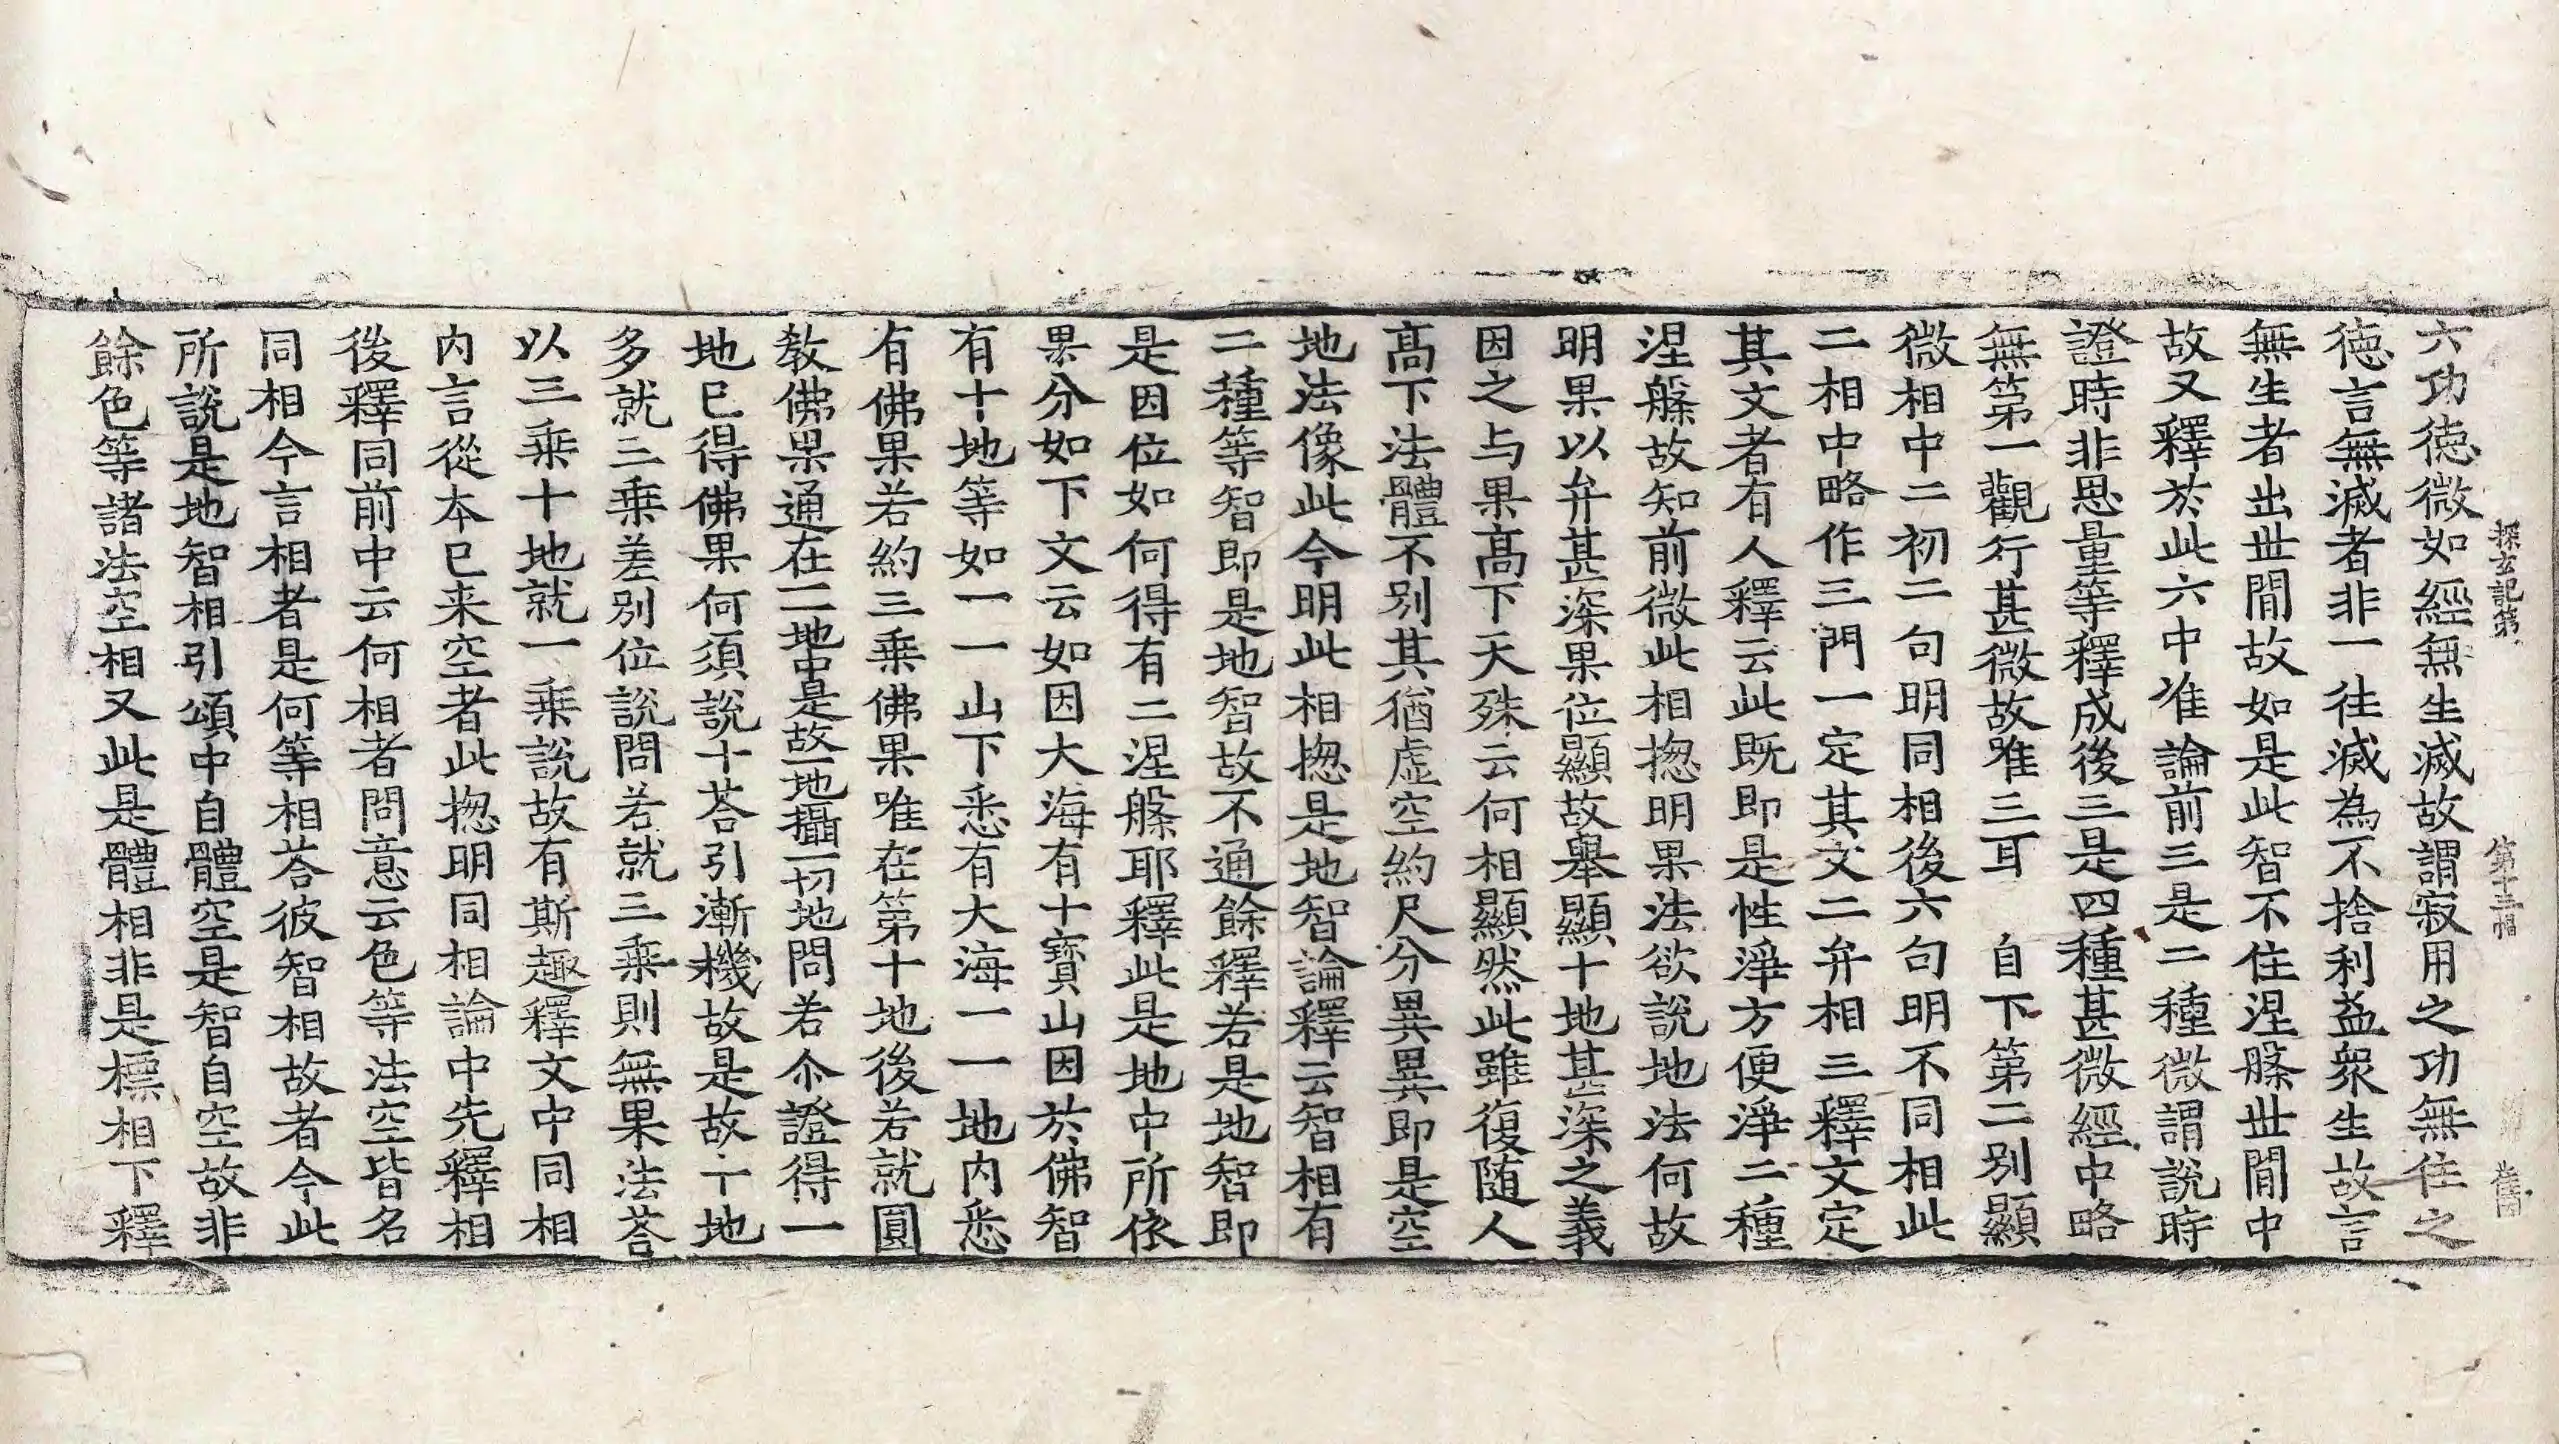 探玄記第
第十三幅
六功德微如經無生滅故謂寂用之功無住之
德言無滅者非一往滅為不捨利益衆生故言
無生者出世間故如是此智不住涅槃世間中
故又釋於此六中准論前三是二種微謂說時
證時非思量等釋成後三是四種甚微經中略
無第一觀行甚微故唯三耳　自下第二別顯
微相中二初二句明同相後六句明不同相此
二相中略作三門一定其文二弁相三釋文定
其文者有人釋云此既即是性淨方便淨二種
涅槃故知前微此相揔明果法欲說地法何故
明果以弁甚深果位顯故舉顯十地甚深之義
因之与果高下天殊云何相顯然此雖復随人
高下法體不別其猶虛空約尺分異異即是空
地法像此今明此相揔是地智論釋云智相有
二種等智即是地智故不通餘釋若是地智即
是因位如何得有二涅槃耶釋此是地中所依
果分如下文云如因大海有十寶山因於佛智
有十地等如一一山下悉有大海一一地内悉
有佛果若約三乘佛果唯在第十地後若就圓
教佛果通在二地中是故一地攝一切地問若尒證得一
地已得佛果何須說十荅引漸機故是故十地
多就三乘差別位說問若就三乘則無果法荅
以三乘十地就一乘說故有斯趣釋文中同相
内言從本已来空者此揔明同相論中先釋相
後釋同前中云何相者問意云色等法空皆名
同相今言相者是何等相荅彼智相故者今此
所說是地智相引頌中自體空是智自空故非
餘色等諸法空相又此是體相非是標相下釋